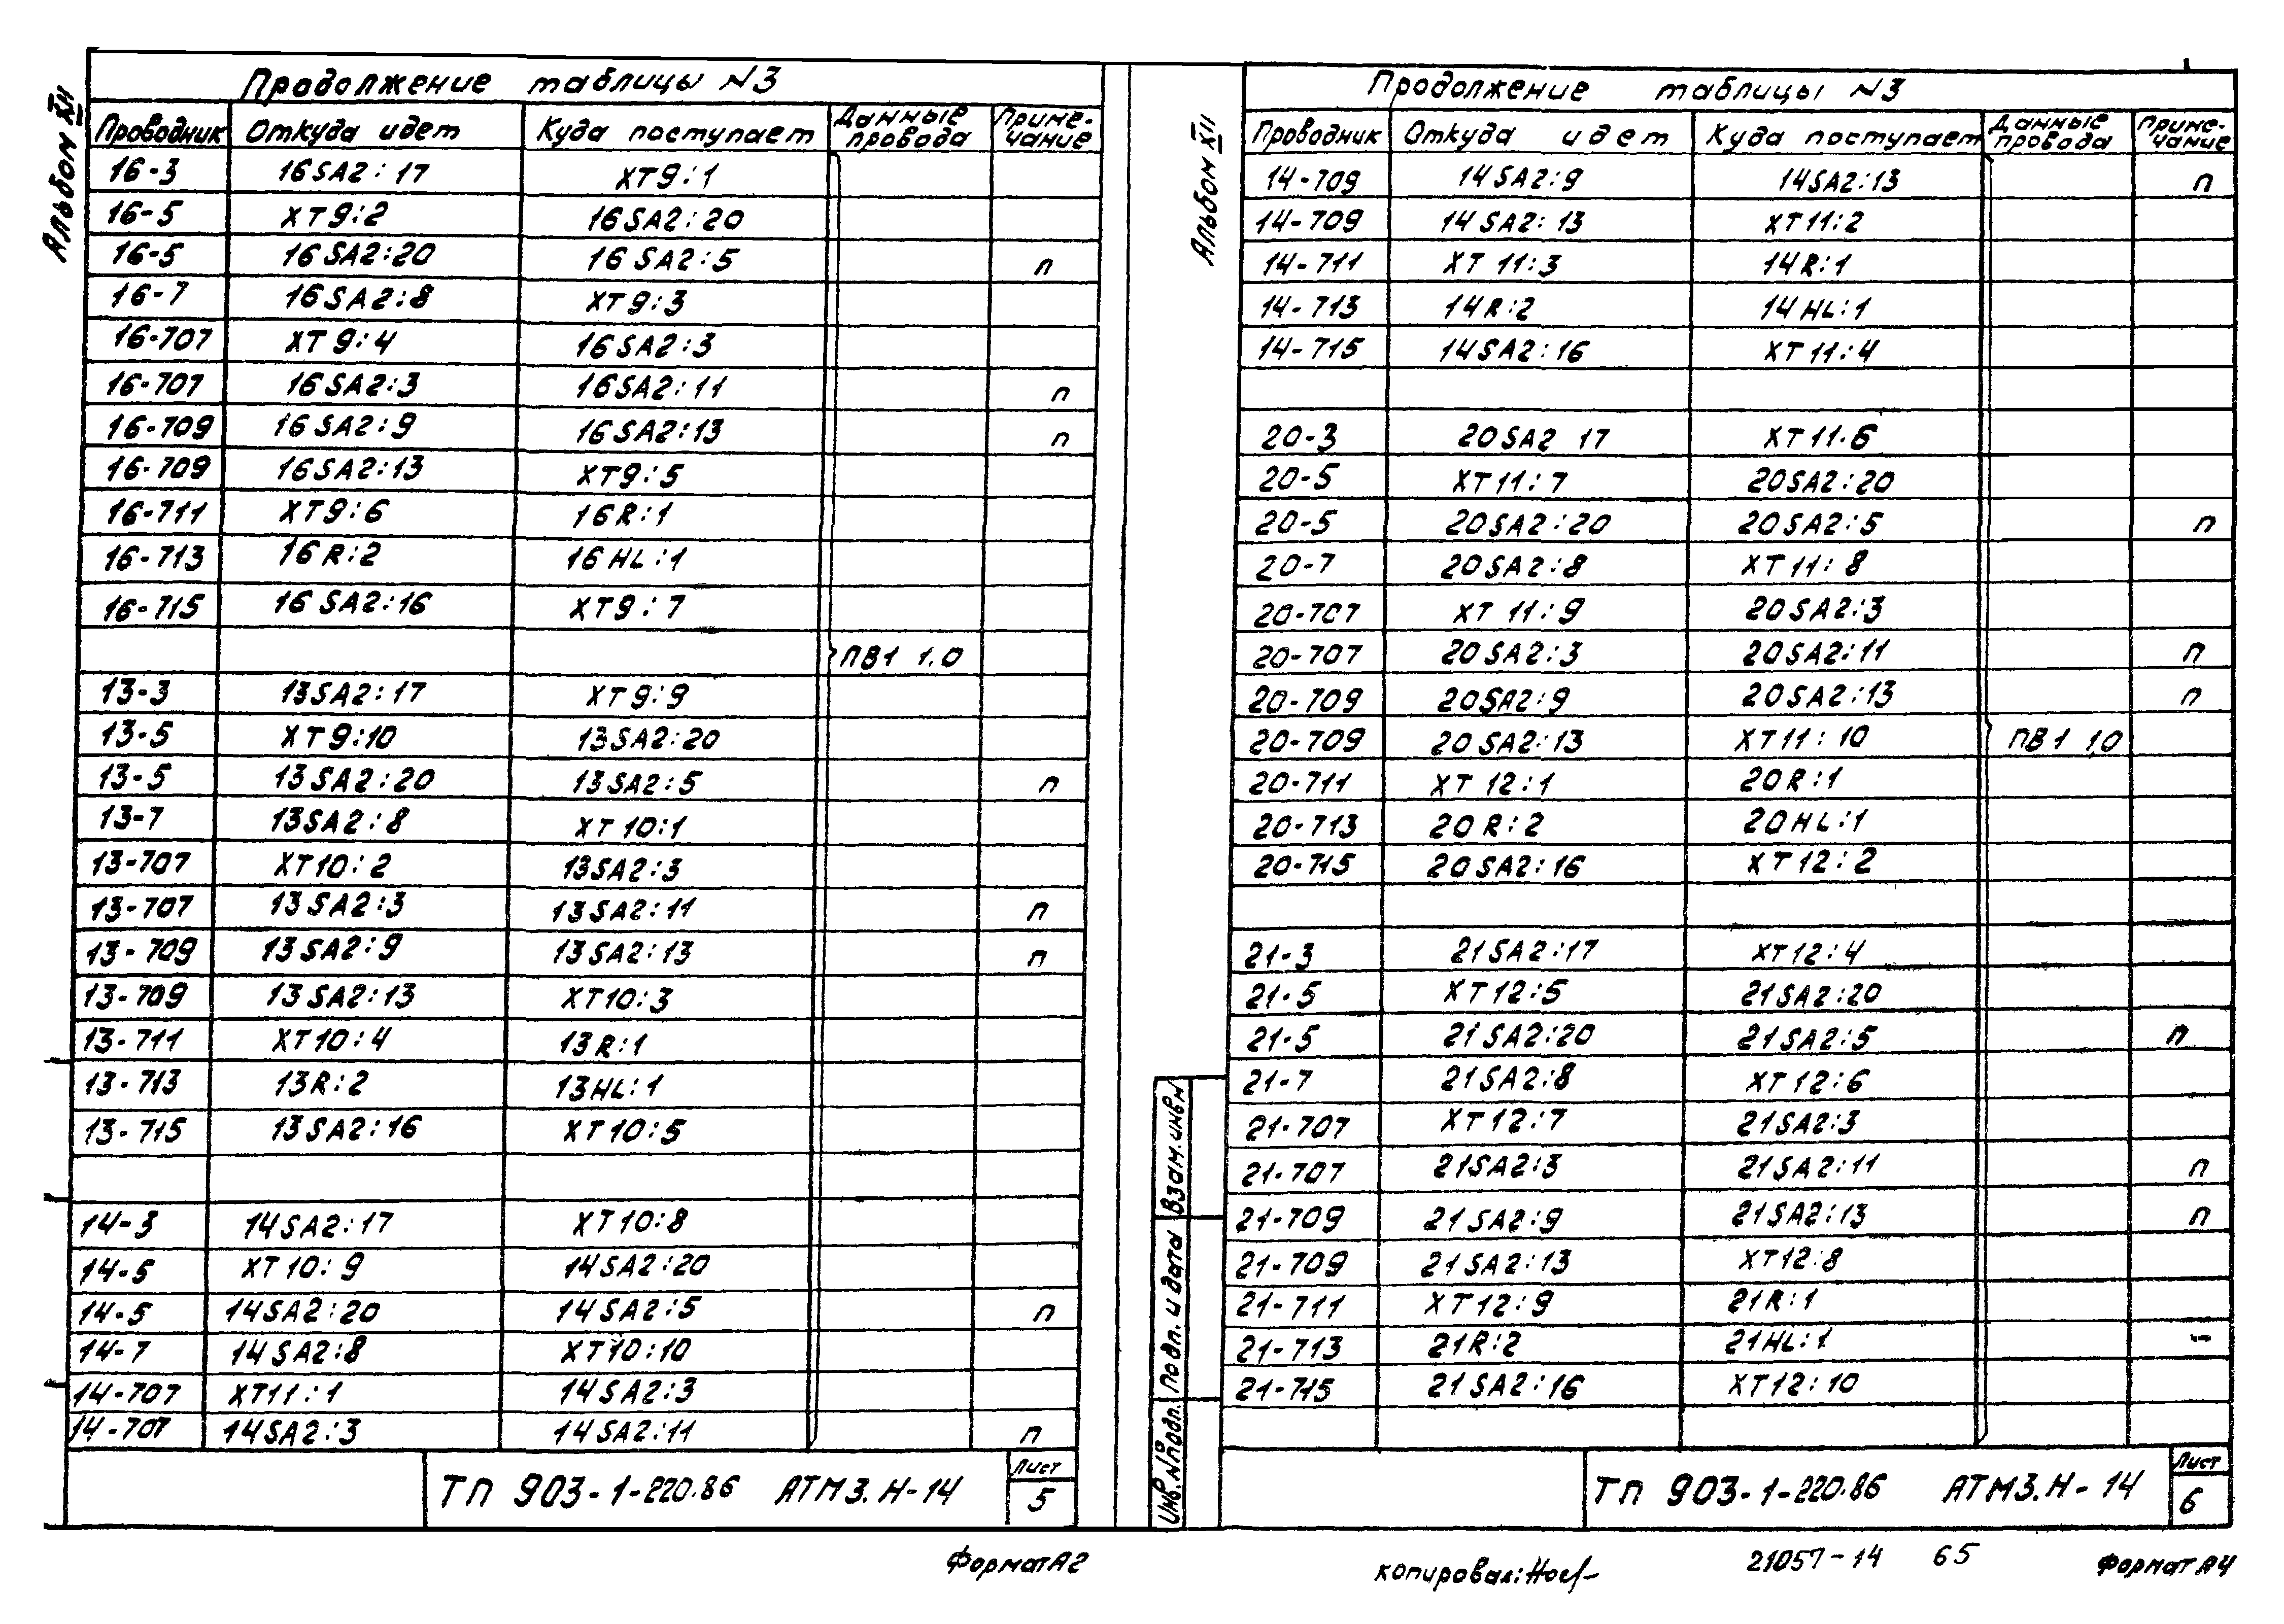 Альбом XII
Продолжение таблицы N3
Проводник Откуда идет Куда поступает Данные провода Приме-чание
16-3 16SA2:17 XT9:1
16-5 XT9:2 16SA2:20
16-5 16SA2:20 16SA2:5 п
16-7 16SA2:8 XT9:3
16-707 XT9:4 16SA2:3
16-707 16SA2:3 16SA2:11 п
16-709 16SA2:9 16SA2:13 п
16-709 16SA2:13 XT9:5
16-711 XT9:6 16R:1
16-713 16R:2 16HL:1
16-715 16SA2:16 XT9:7
ПВ1 1.0
13-3 13SA2:17 XT9:9
13-5 XT9:10 13SA2:20
13-5 13SA2:20 13SA2:5 п
13-7 13SA2:8 XT10:1
13-707 XT10:2 13SA2:3
13-707 13SA2:3 13SA2:11 п
13-709 13SA2:9 13SA2:13 п
13-709 13SA2:13 XT10:3
13-711 XT10:4 13R:1
13-713 13R:2 13HL:1
13-715 13SA2:16 XT10:5
14-3 14SA2:17 XT10:8
14-5 XT10:9 14SA2:20
14-5 14SA2:20 14SA2:5 п
14-7 14SA2:8 XT10:10
14-707 XT11:1 14SA2:3
14-707 14SA2:3 14SA2:11 п
ТП 903-1-220.86 АТМ3.Н-14
Лист
5
Формат А2
Альбом XII
Продолжение таблицы N3
Проводник Откуда идет Куда поступает Данные провода Приме-чание
14-709 14SA2:9 14SA2:13 п
14-709 14SA2:13 XT11:2
14-711 XT11:3 14R:1
14-713 14R:2 14HL:1
14-715 14SA2:16 XT11:4
20-3 20SA2 17 XT11.6
20-5 XT11:7 20SA2:20
20-5 20SA2:20 20SA2:5 п
20-7 20SA2:8 XT11:8
20-707 XT11:9 20SA2:3
20-707 20SA2:3 20SA2:11 п
20-709 20SA2:9 20SA2:13 п
20-709 20SA2:13 XT11:10 ПВ1 1,0
20-711 XT12:1 20R:1
20-713 20R:2 20HL:1
20-715 20SA2:16 XT12:2
21-3 21SA2:17 XT12:4
21-5 XT12:5 21SA2:20
21-5 21SA2:20 21SA2:5 п
21-7 21SA2:8 XT12:6
21-707 XT12:7 21SA2:3
21-707 21SA2:3 21SA2:11 п
21-709 21SA2:9 21SA2:13 п
21-709 21SA2:13 XT12:8
21-711 XT12:9 21R:1
21-713 21R:2 21HL:1 -
21-715 21SA2:16 XT12:10
Взам.инв.N
Подп. и дата
Инв.N°подл.
ТП 903-1-220.86 АТМ3.Н-14
Лист
6
копировал:
21057-14 65
Формат А4